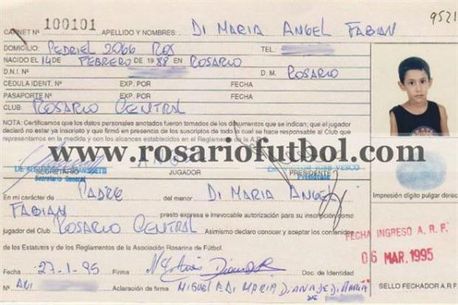 9521
CARNET Nº 100101 APELLIDO Y NOMBRES: DI MARIA ANGEL FABIAN
DOMICILIO: PEDRIEL 2066 ROS TEL.
NACIDO EL 14 DE FEBRERO DE 1988 EN ROSARIO
D.N.I. Nº D. M. ROSARIO
CÉDULA IDENT. Nº EXP. POR FECHA
PASAPORTE Nº EXP. POR FECHA
CLUB: ROSARIO CENTRAL
NOTA: Certificamos que los datos personales anotados fueron tomados de los documentos que se indican; que el jugador
declaró no estar ya inscripto y que firmó en presencia de los suscriptos de todo lo cual se hace responsable al Club que
representamos en la medida y con los alcances establecidos en el Reglamento de la A.R.F.
www.rosariofutbol.com
SECRETARIO JUGADOR PRESIDENTE
Secretario General
En mi carácter de PADRE del menor DI MARIA ANGEL
FABIAN presto expresa e irrevocable autorización para su inscripción como
jugador del Club ROSARIO CENTRAL Asimismo declaro conocer y aceptar los contenidos
de los Estatutos y de los Reglamentos de la Asociación Rosarina de Fútbol.
Fecha 27-1-95 Doc. de Identidad
Nº Firma Aclaración de firma MIGUEL A. DI MARIA DIANA
Impresión dígito pulgar derecho
FECHA INGRESO A. R. F.
06 MAR. 1995
SELLO FECHADOR A.R.F.